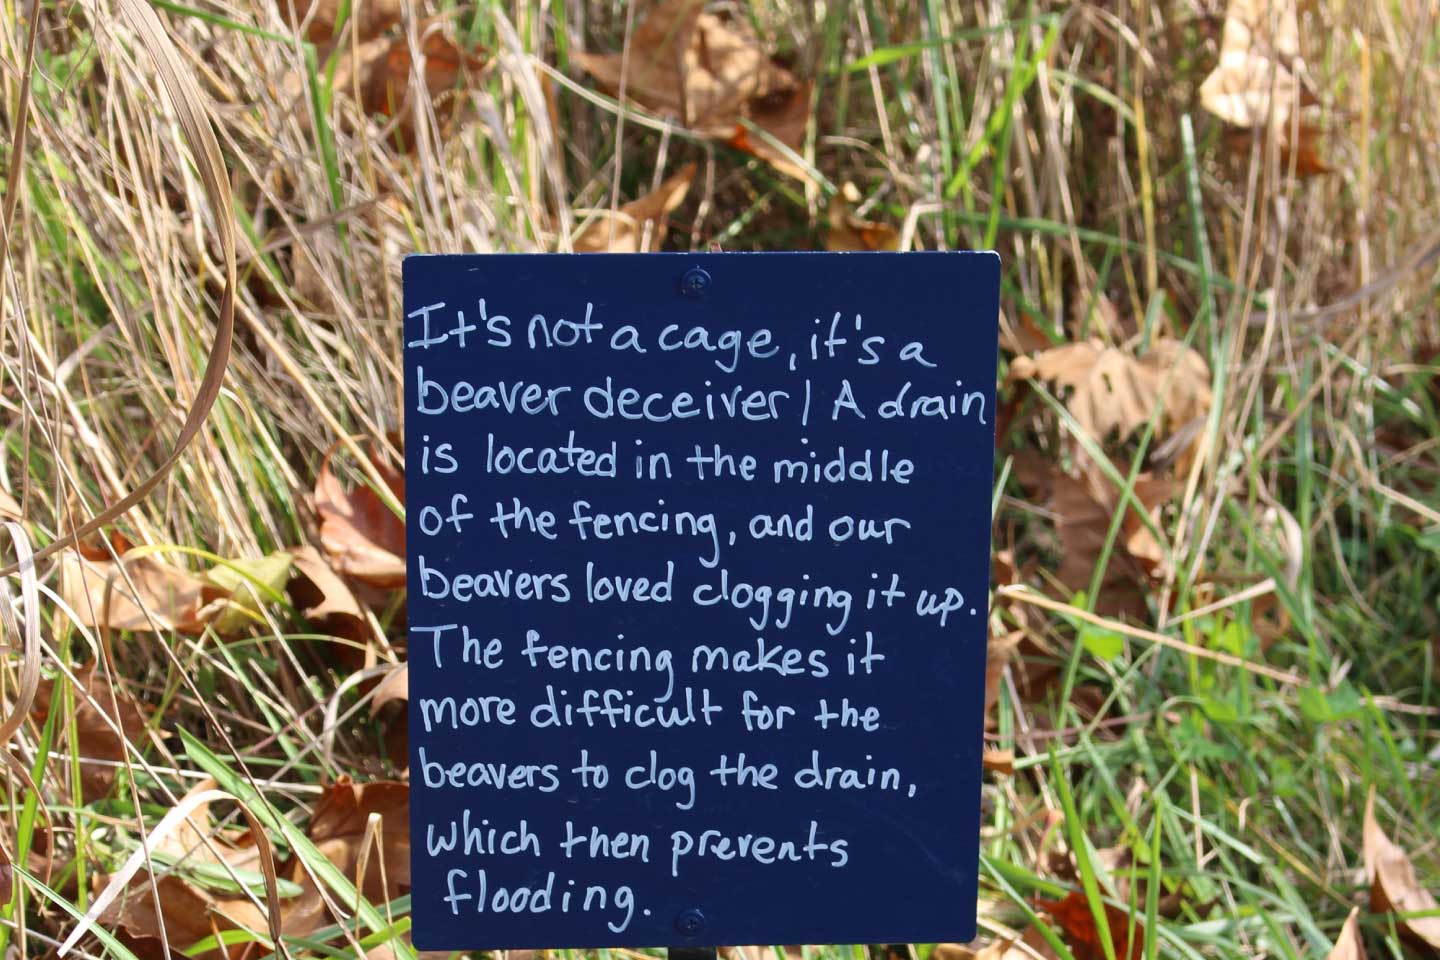 It's not a cage, it's a
beaver deceiver! A drain
is located in the middle
of the fencing, and our
beavers loved clogging it up.
The fencing makes it
more difficult for the
beavers to clog the drain,
which then prevents
flooding.